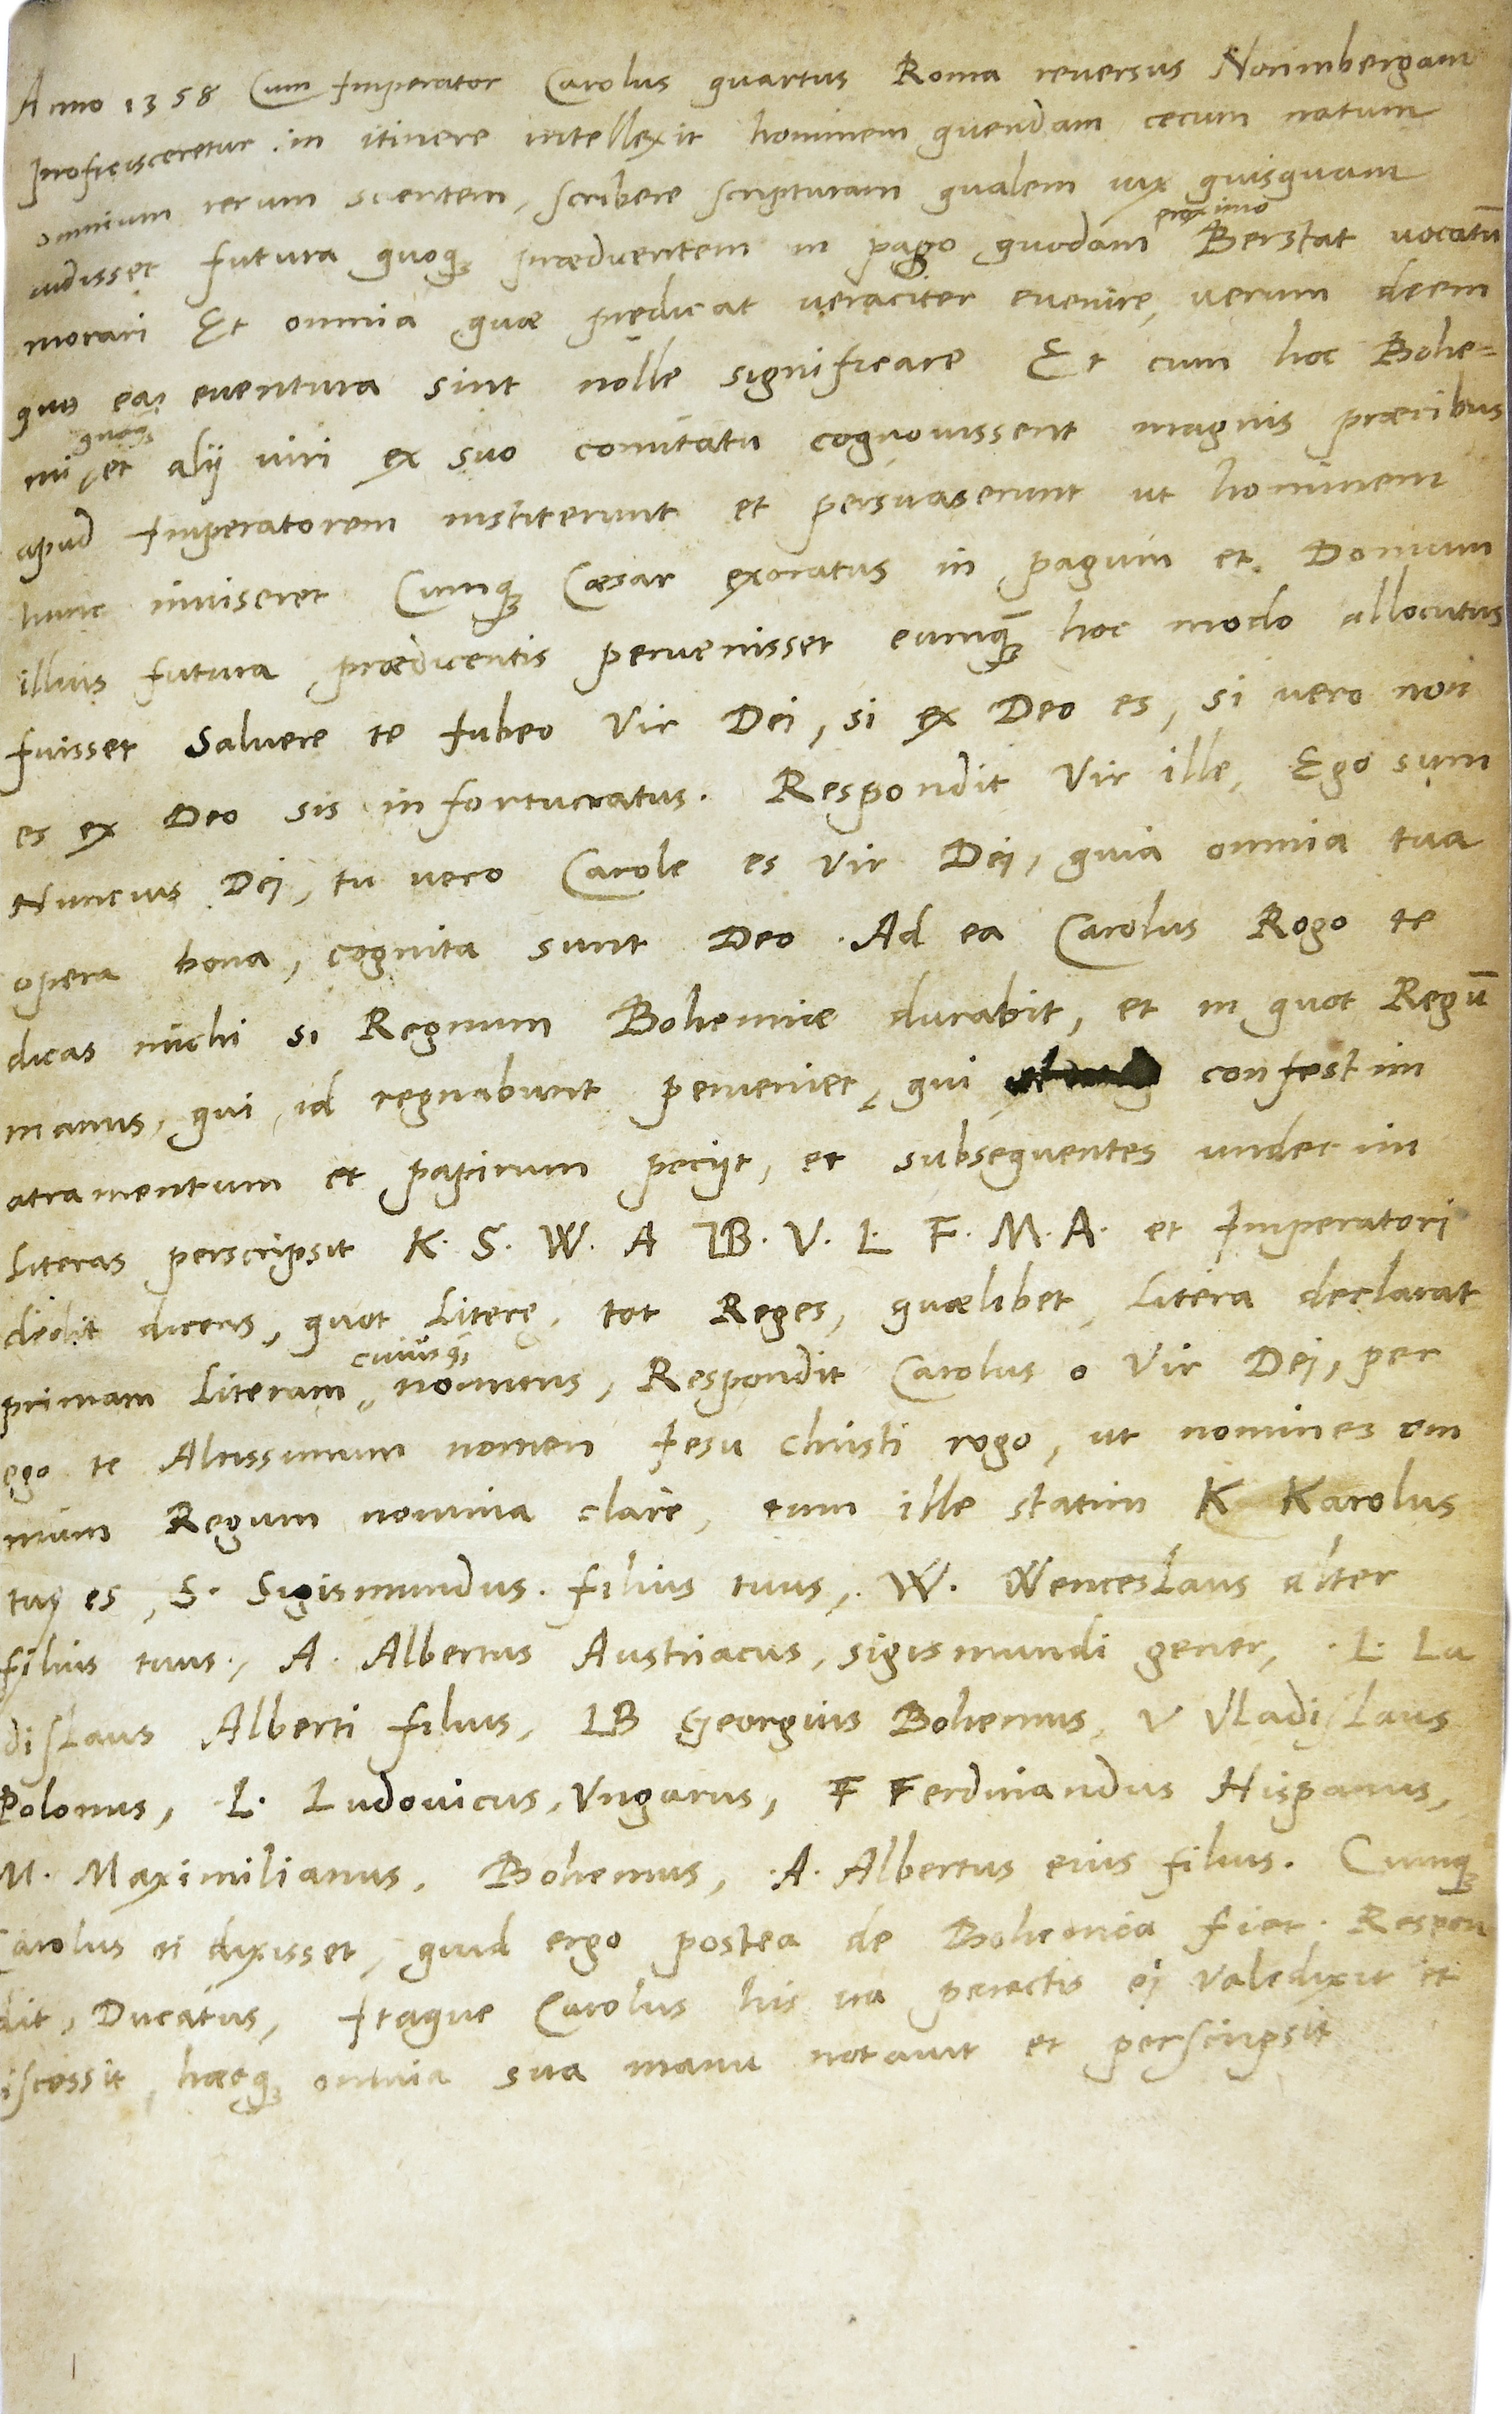 Anno 1358 Cum Imperator Carolus quartus Roma reuersus Norimbergam
proficisceretur in itinere intellexit hominem quendam cecum natum
omnium rerum scientem, scribere scripturam qualem uix quisquam
uidisset futura quoq; prædicentem in pago quodam proximo Berstat uocatū
morari Et omnia quæ prędicat ueraciter euenire, uerum deem
quo ea euentura sint nolle significare Et cum hoc Bohe=
mi quoq; et alij uiri ex suo comitatu cognouissent magnis præcibus
apud Imperatorem institerunt et persuaserunt ut hominem
hunc inuiseret Cumq; Cæsar exoratus in pagum et Domum
illius futura prædicentis peruenisset eumq; hoc modo allocutus
fuisset Saluere te Iubeo Vir Dei, si ex Deo es, si uero non
es ex Deo sis infortunatus. Respondit Vir ille, Ego sum
Nuncius Dej, tu uero Carole es Vir Dej, quia omnia tua
opera bona, cognita sunt Deo. Ad ea Carolus Rogo te
dicas michi si Regnum Bohemiæ durabit, et in quot Regū
manus, qui id regnabunt perueniet, qui confestim
atramentum et papirum petijt, et subsequentes undecim
Literas perscripsit K. S. W. A IB. V. L. F. M. A. et Imperatori
dedit dicens, quot Literę, tot Reges, quælibet, Litera declarat
primam Literam cuiusq; nominis, Respondit Carolus o Vir Dej, per
ego te Altissimum nomen Iesu Christi rogo, ut nomines om
nium Regum nomina clare, tum ille statim K Karolus
tu es, S. Sigismundus. filius tuus, W. Wenceslaus alter
filius tuus, A. Albertus Austriacus, sigismundi gener, L. La
dislaus Alberti filius, IB Georgius Bohemus, V Vladislaus
Polonus, L. Ludouicus, Vngarus, F Ferdinandus Hispanus,
M. Maximilianus, Bohemus, A. Albertus eius filius. Cumq;
Carolus ei dixisset, quid ergo postea de Bohemia fiet. Respon
dit, Ducatus, Itaque Carolus his ita peractis ej Valedixit et
iscessit, hæcq; omnia sua manu notauit et perscripsit